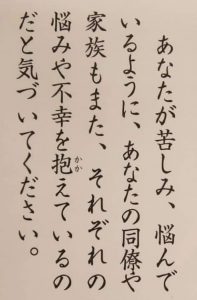 あなたが苦しみ、悩んで
いるように、あなたの同僚や
家族もまた、それぞれの
悩みや不幸を抱えているの
だと気づいてください。